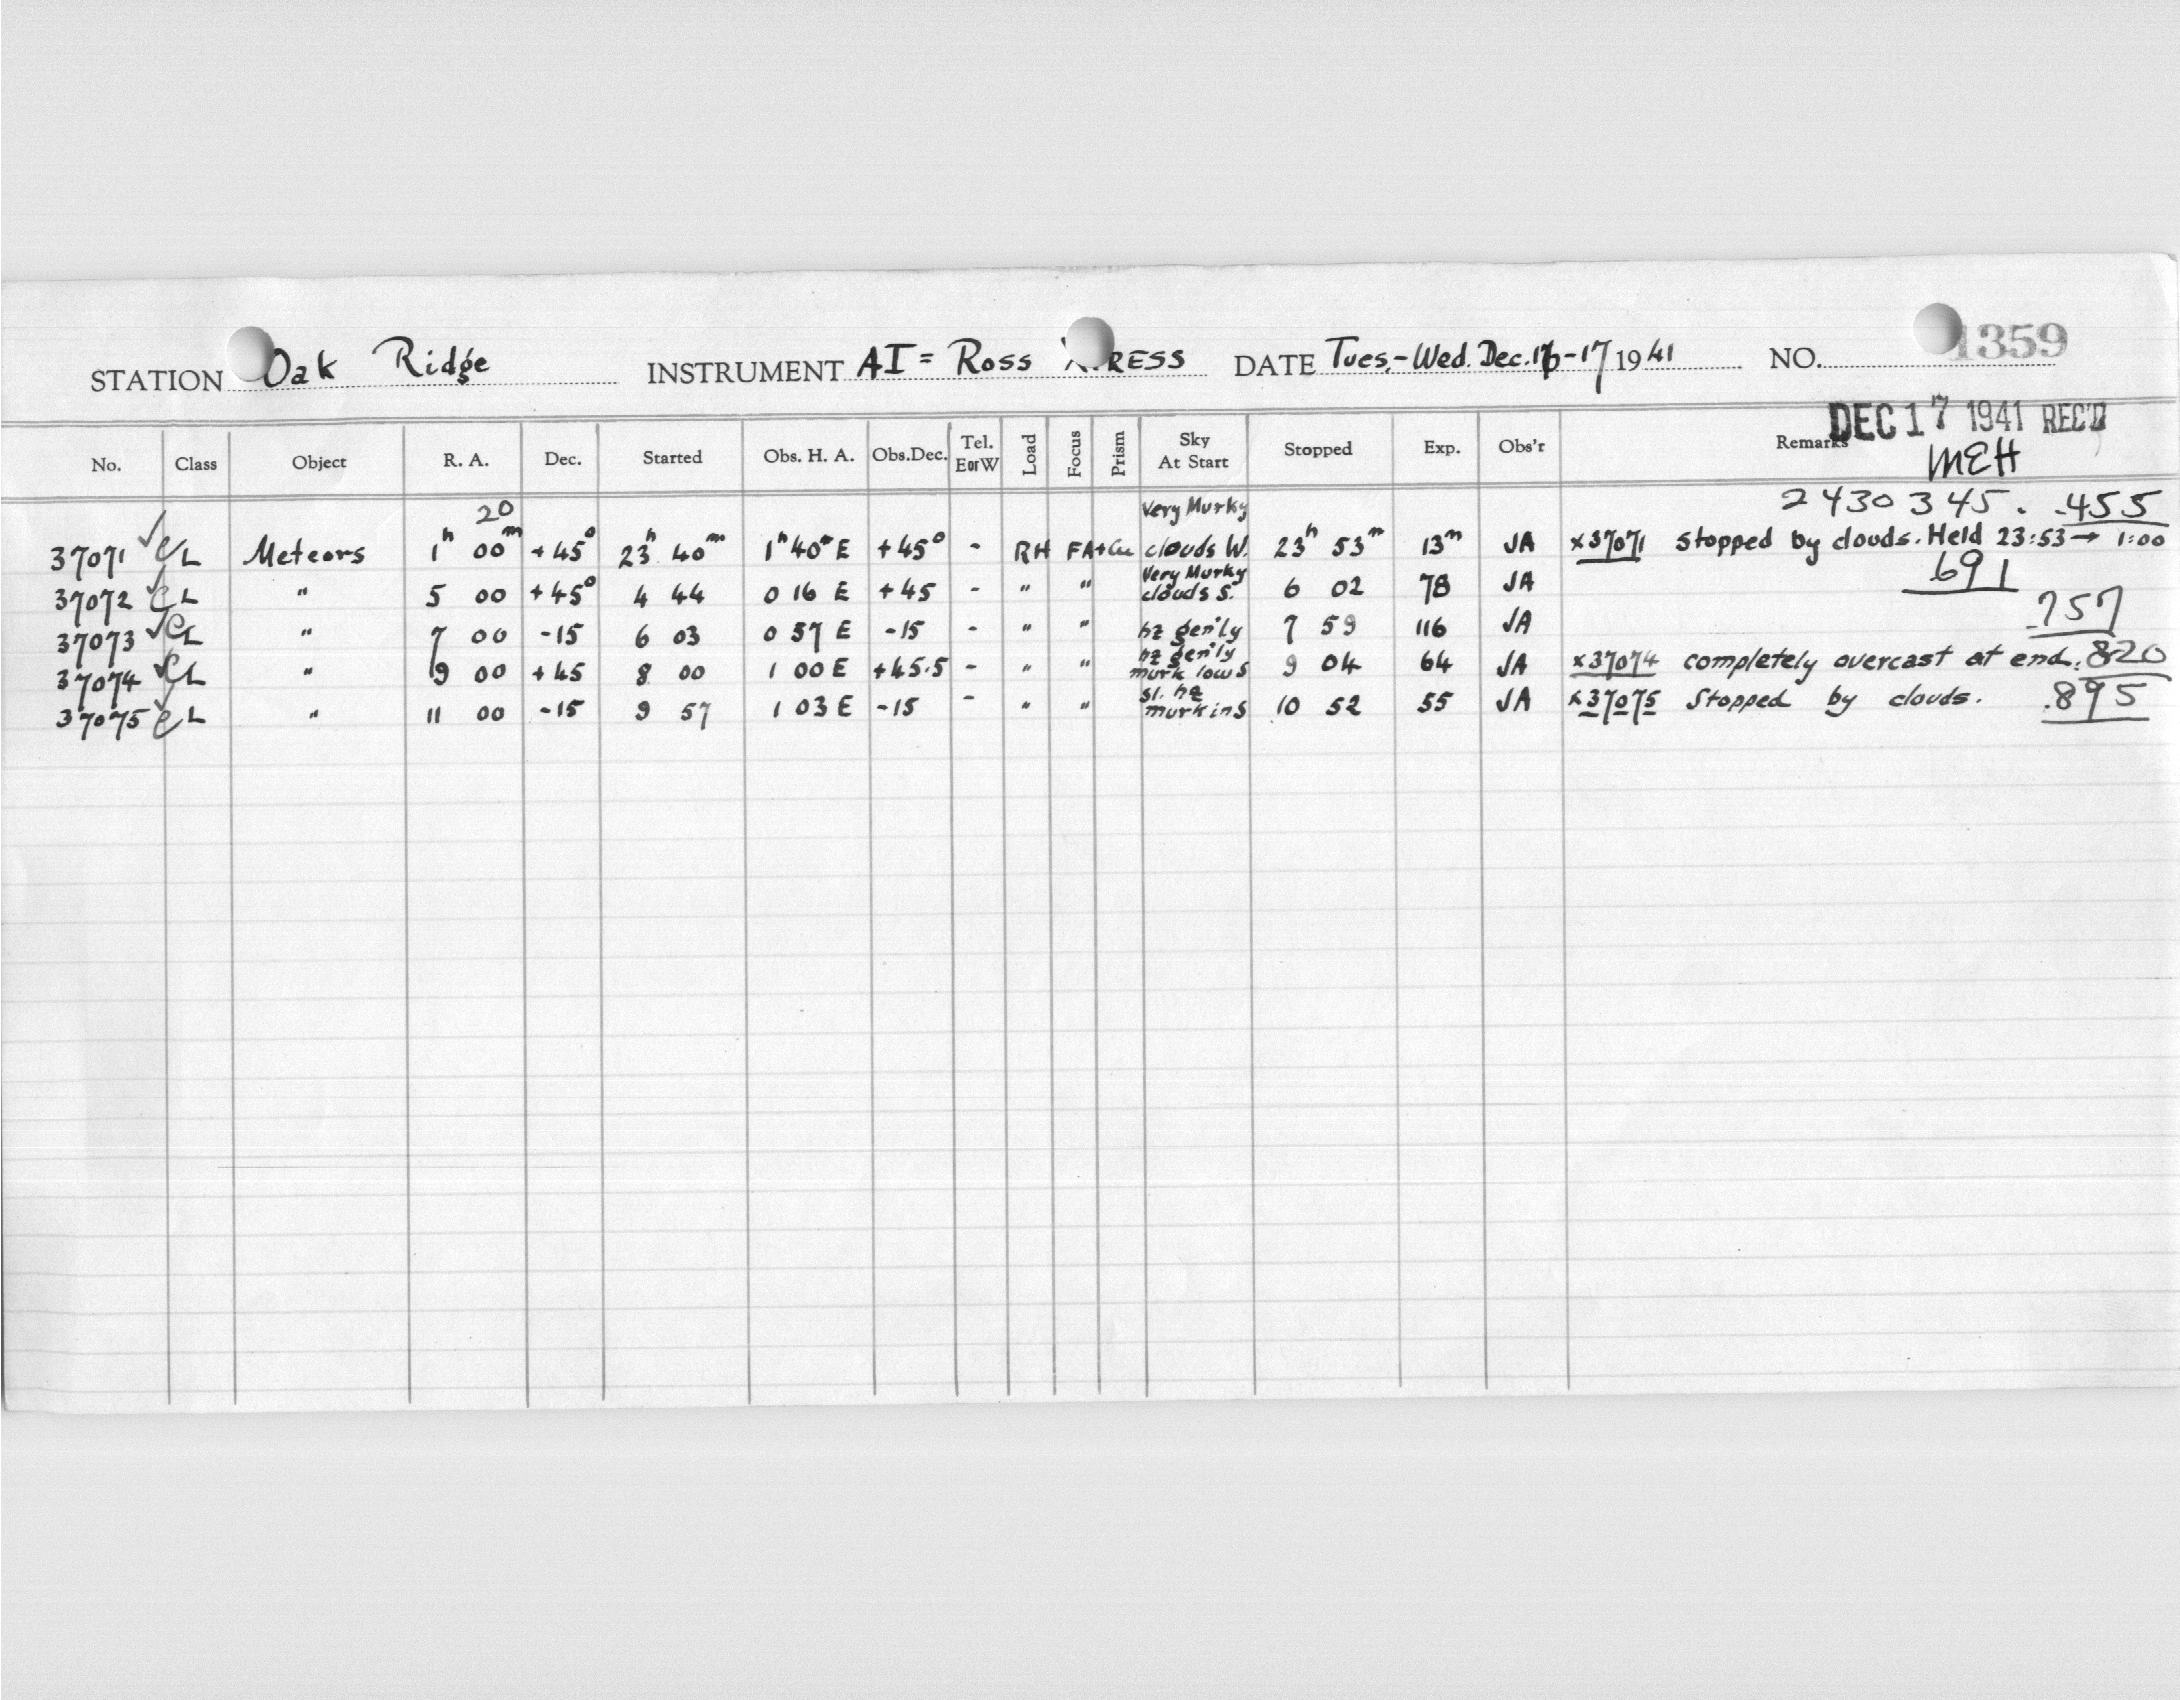 STATION Oak Ridge INSTRUMENT AI = Ross XPRESS DATE Tues.-Wed. Dec. 16-17 1941 NO. 1359
DEC 17 1941 REC'D
No. Class Object R. A. Dec. Started Obs. H. A. Obs. Dec. Tel. E or W Load Focus Prism Sky At Start Stopped Exp. Obs'r Remarks
MEH
20 Very Murky 2430345. .455
37071 ✓ C L Meteors 1h 00m +45° 23h 40m 1h 40m E +45° - RH FA+Cu clouds W. 23h 53m 13m JA x37071 stopped by clouds. Held 23:53 → 1:00
Very Murky .691
37072 ✓ C L " 5 00 +45° 4 44 0 16 E +45 - " " clouds S. 6 02 78 JA
.757
37073 ✓ C L " 7 00 -15 6 03 0 57 E -15 - " " hz gen'ly 7 59 116 JA
hz gen'ly
37074 ✓ C L " 9 00 +45 8 00 1 00 E +45.5 - " " murk low S 9 04 64 JA x37074 completely overcast at end. .820
sl. hz
37075 ✓ C L " 11 00 -15 9 57 1 03 E -15 - " " murk in S 10 52 55 JA x37075 Stopped by clouds. .895